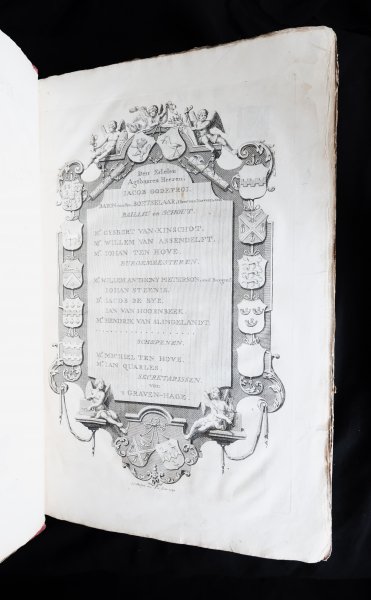 Den Edelen
Agtbaaren Heeren.
JACOB GODEFROI,
BARON van den BOETSELAAR,
BAILLIU en SCHOUT.
Mr. GYSBERT VAN KINSCHOT.
Mr. WILLEM VAN ASSENDELFT.
Mr. JOHAN TEN HOVE.
BURGEMEESTEREN.
Mr. WILLEM ANTHONY PIETERSON,
JOHAN STEENIS.
Dr. JACOB DE BYE.
JAN VAN HOGENBEEK.
Mr. HENDRIK VAN SLINGELANDT.
SCHEPENEN.
Mr. MICHIEL TEN HOVE.
Mr. JAN QUARLES.
SECRETARISSEN
van
's GRAVEN-HAGE.